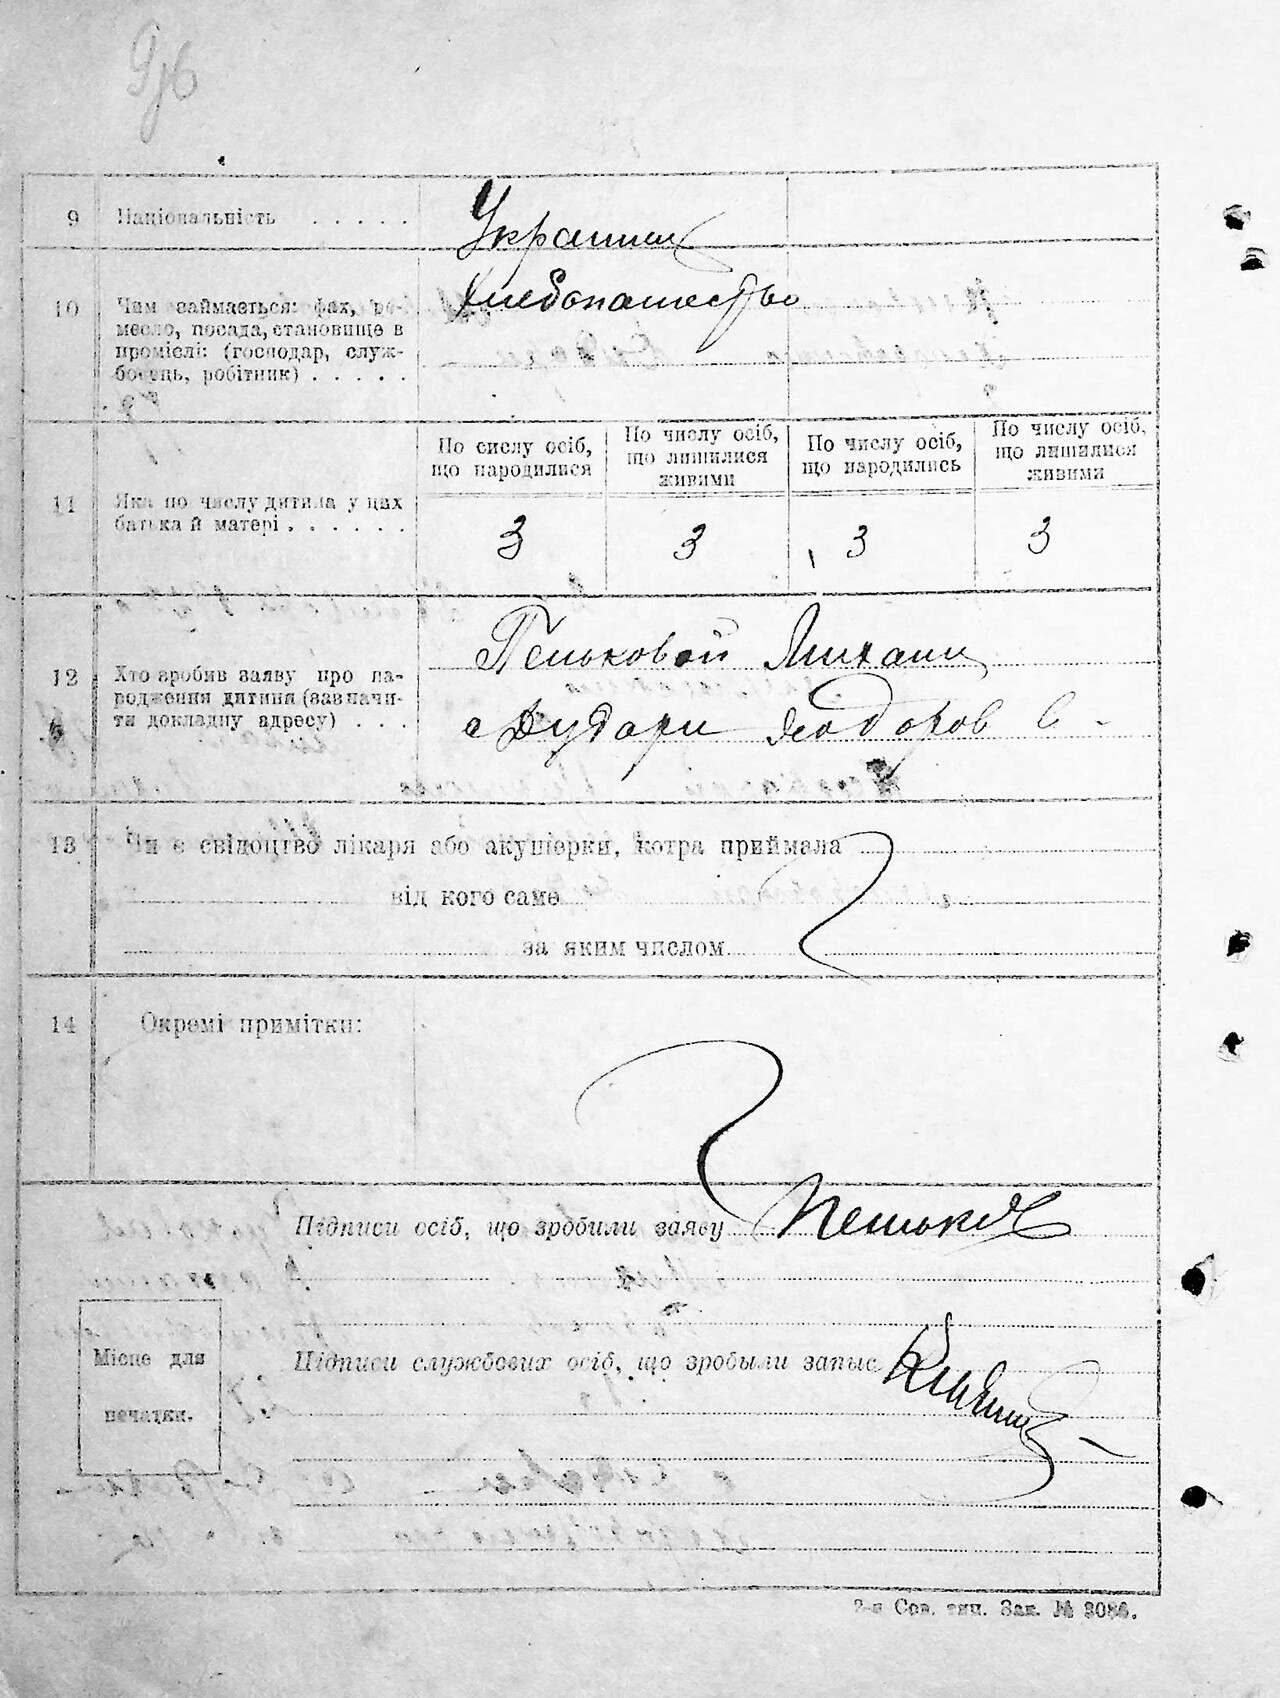 9 Національність . . . . .
Украинец
10 Чим займається: фах, ре-
месло, посада, становище в
проміслі: (господар, служ-
бовець, робітник) . . . . .
Хлебопашество
По числу осіб,
що народилися
По числу осіб,
що лишилися
живими
По числу осіб,
що народились
По числу осіб,
що лишилися
живими
11 Яка по числу дитина у цих
батька й матері . . . . . .
3 3 3 3
12 Хто зробив заяву про на-
родження дитини (зазначи-
ти докладну адресу) . . .
Пеньковой Михаил
с
13 Чи є свідоцтво лікаря або акушерки, котра приймала
від кого саме
за яким числом
14 Окремі примітки:
Підписи осіб, що зробили заяву Пеньков
Місце для
печатки.
Підписи службових осіб, що зробыли запыс
2-я Сов. тип. Зак. № 3086.